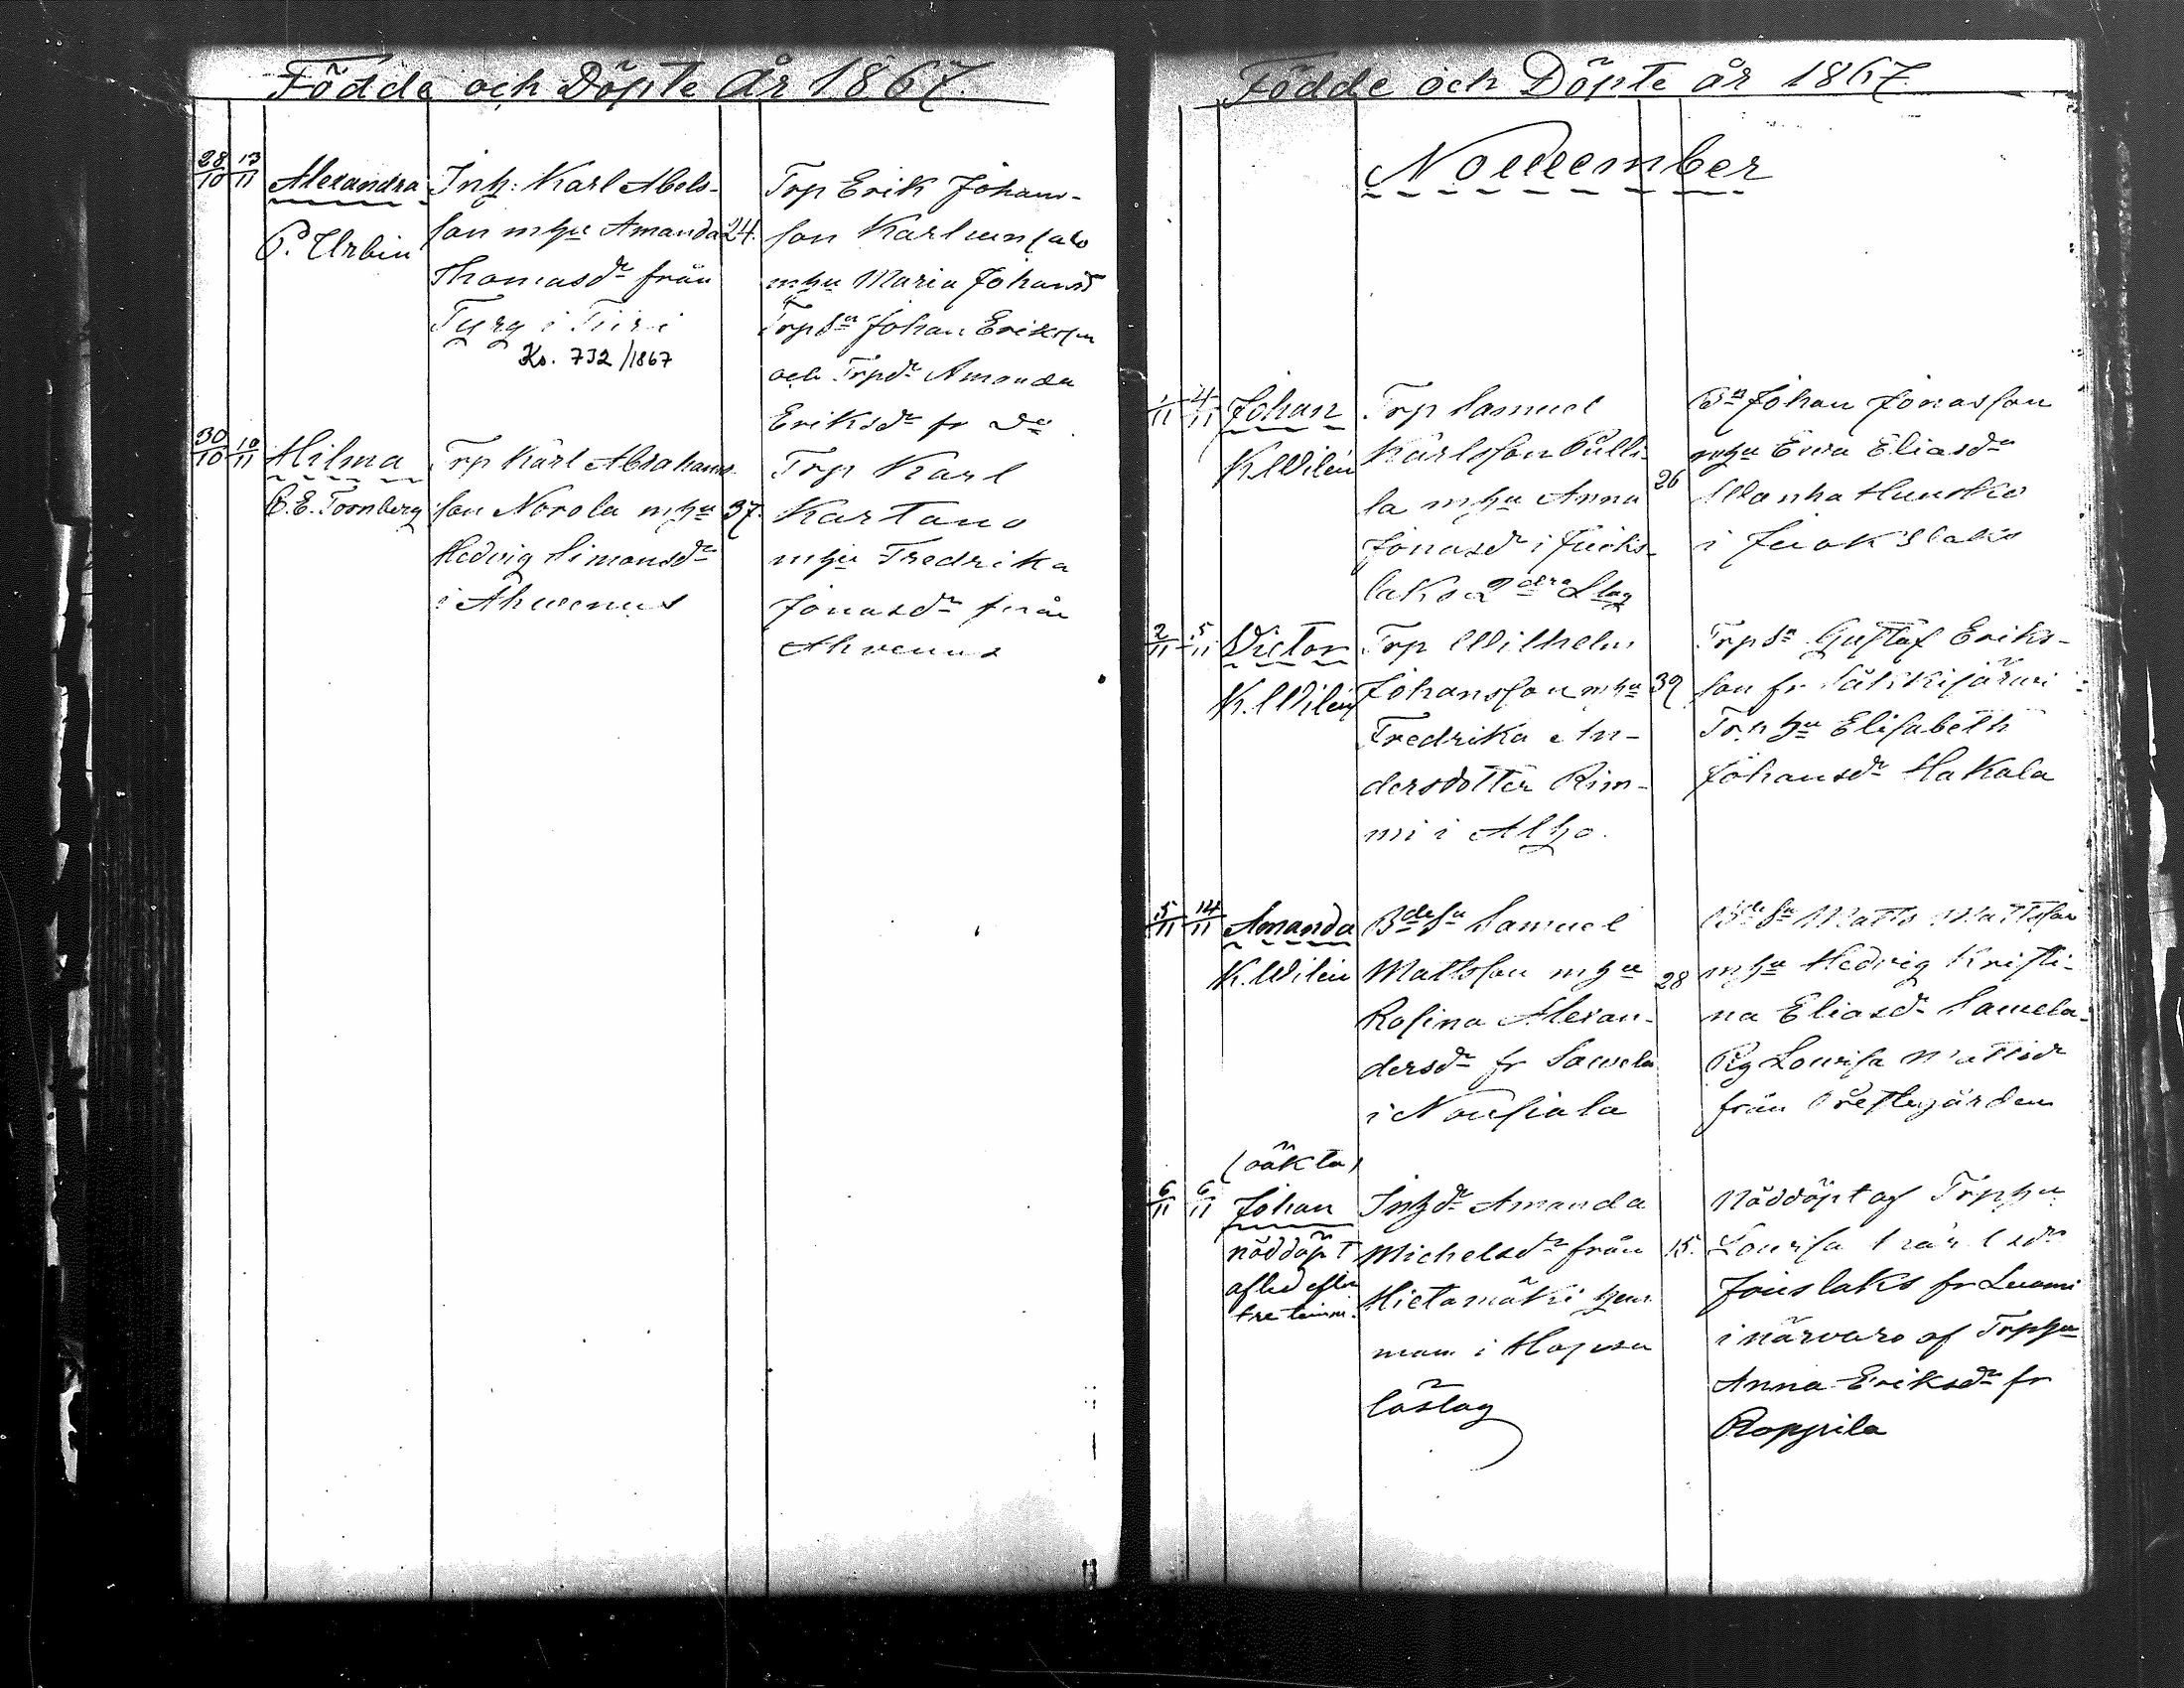 Födde och Döpte År 1867.
28/10 13/11 Alexandra
P. Urbin
Inh: Karl Abels-
son m hu Amanda 24.
Thomasdr från
Tyry i Tiiri
Ko. 732/1867
Trp Erik Johans-
son
mhu Maria Johansd
Trpsn Johan Eriksson
och Trpdr Amanda
Eriksdr fr Do
30/10 10/11 Hilma
C. E. Törnberg
Trp Karl Abrahams-
son Norola mhu 37.
Hedvig Simonsdr
i Ahvenus
Trp Karl
Kartano
mhu Fredrika
Jonasdr från
Ahvenus
Födde och Döpte år 1867.
November
1/11 4/11 Johan
K. Wilén
Trp Samuel
Karlsson Pulli-
la mhu Anna 26
Jonasdr i
laks 2dra Slag
Bn Johan Jonasson
mhu Eva Eliasdr
Wanha
i
2/11 5/11 Victor
K. Wilén
Trp Wilhelm
Johansson mhu 39
Fredrika An-
dersdotter Rim-
mi i Alho.
Trpsn Gustaf Eriks-
son fr Säkkijärvi
Trp hu Elisabeth
Johansdr Hakala
5/11 14/11 Amanda
K. Wilén
Bdesn Samuel
Mattsson mhu 28
Rosina Alexan-
dersdr fr Sawela
i Nousiala
Bdesn Matts Mattsson
mhu Hedvig Kristi-
na Eliasdr Sawela
Pig Lovisa Mattsdr
från Prestegården
(oäkta)
6/11 6/11 Johan
nöddöpt
afled efter
tre timm.
Inhdr Amanda
Michelsdr från 15.
Hietamäki hem
man i
löslag
Nöddöpt af Trphu
Lovisa Karlsdr
fr
i närvaro af Trphu
Anna Eriksdr fr
Roppila